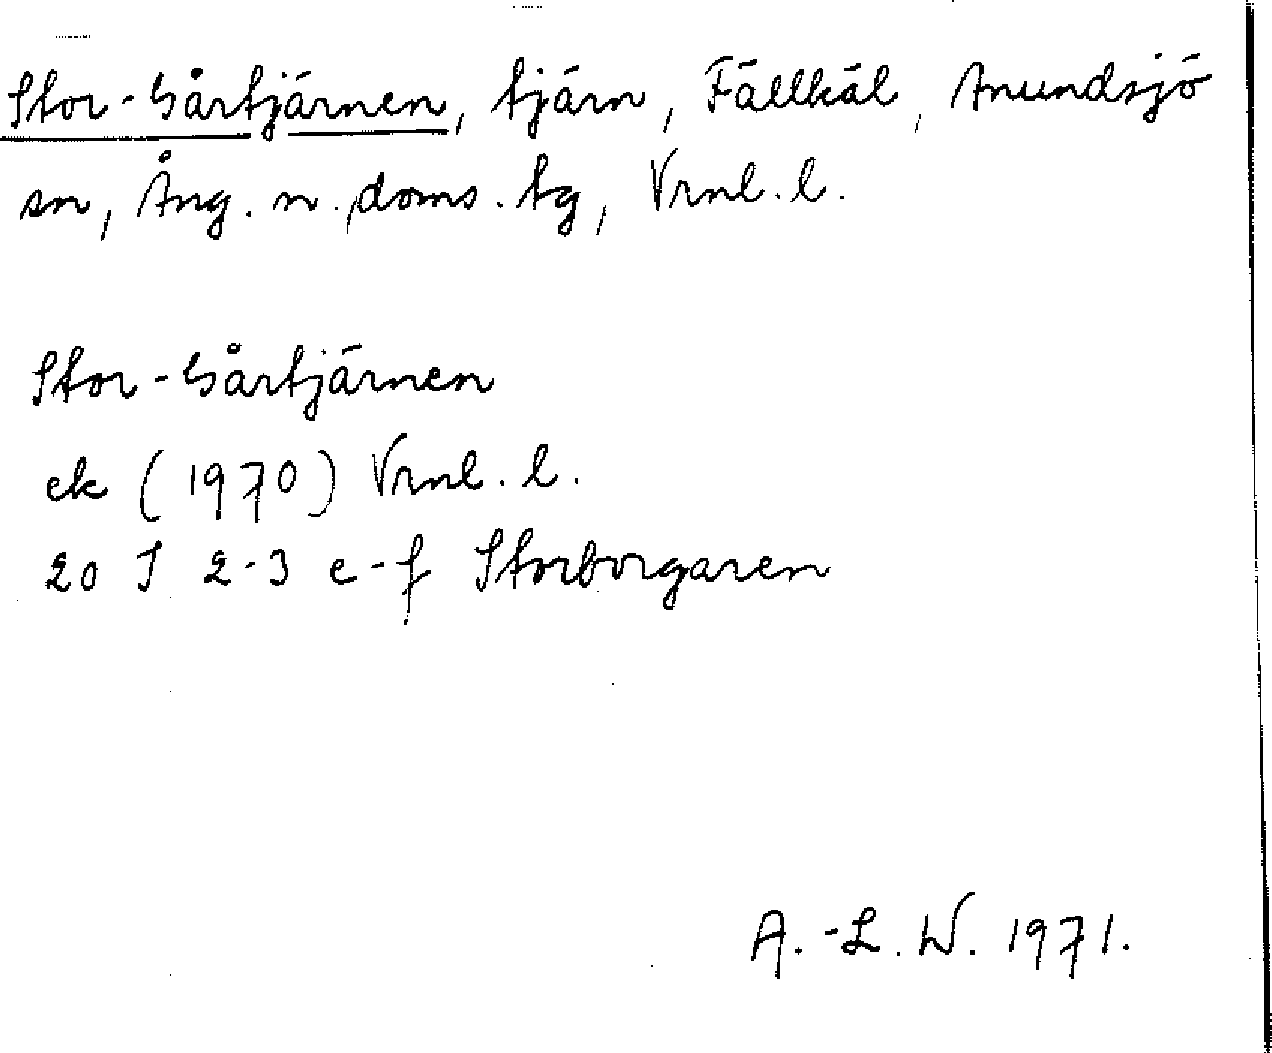 Stor-Gårtjärnen, tjärn, Fällkäl, Anundsjö
sn, Ång. n. doms. tg, Vrnl. l.
Stor-Gårtjärnen
ek (1970) Vrnl. l.
20 I 2-3 e-f Storborgaren
A.-L. W. 1971.